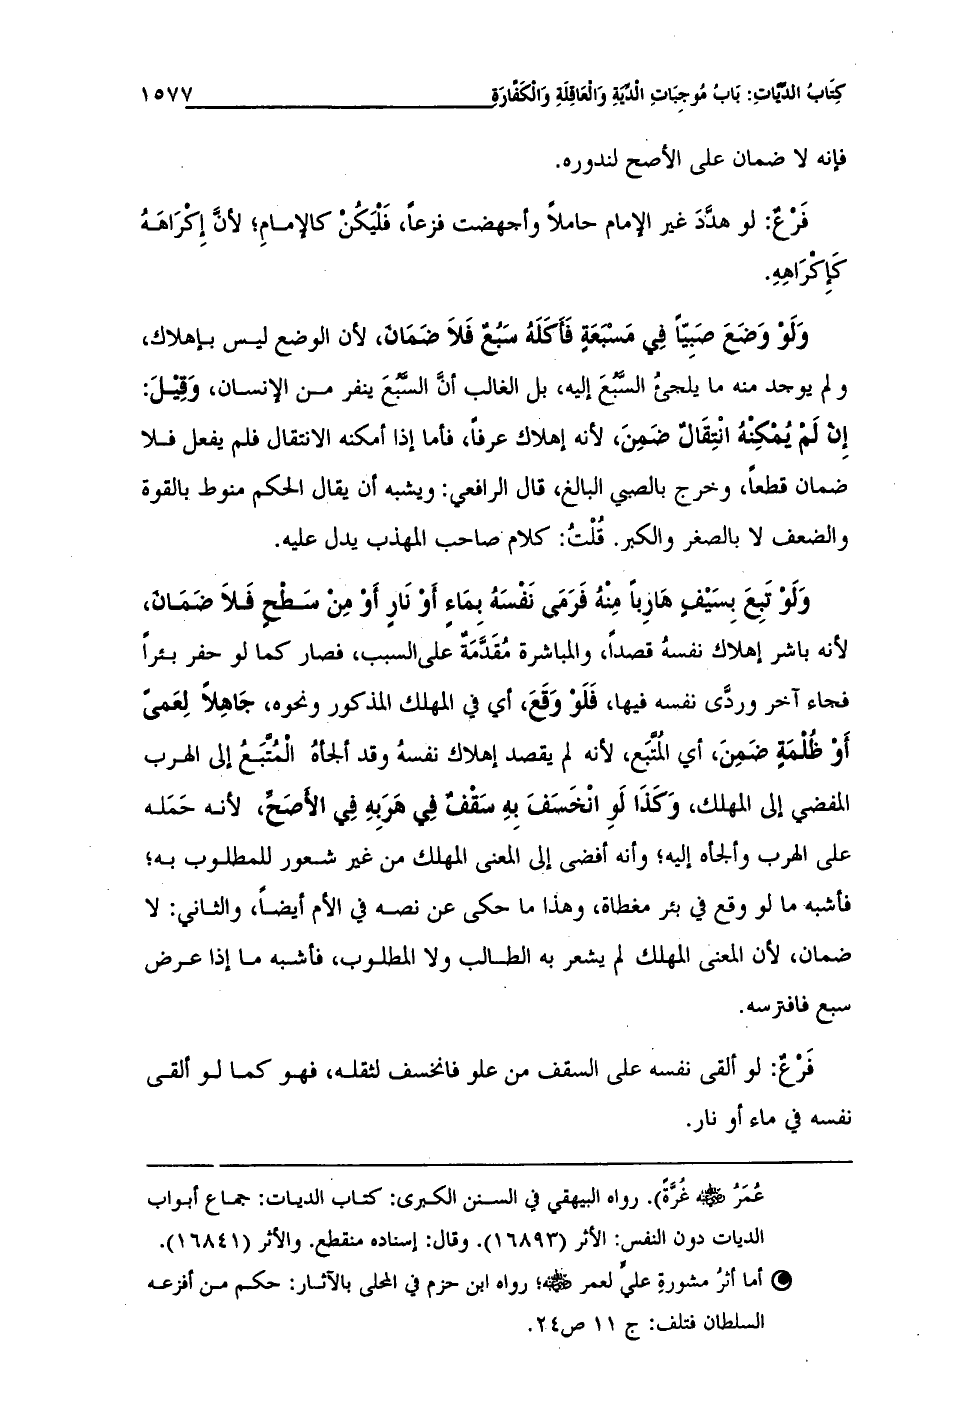 كِتَابُ الدِّيَاتِ: بَابُ مُوجِبَاتِ الْدِّيَةِ وَالْعَاقِلَةِ وَالْكَفَّارَةِ ١٥٧٧
فإنه لا ضمان على الأصح لندوره.
فَرْعٌ: لو هدَّدَ غير الإمام حاملاً وأجهضت فزعاً، فَلْيَكُنْ كالإمامِ؛ لأنَّ إِكْرَاهَهُ
كَإِكْرَاهِهِ.
وَلَوْ وَضَعَ صَبِيّاً فِي مَسْبَعَةٍ فَأَكَلَهُ سَبُعٌ فَلاَ ضَمَانَ، لأن الوضع ليس بإهلاك،
و لم يوجد منه ما يلجئُ السَّبُعَ إليه، بل الغالب أنَّ السَّبُعَ ينفر من الإنسان، وَقِيْلَ:
إِنْ لَمْ يُمْكِنْهُ انْتِقَالٌ ضَمِنَ، لأنه إهلاك عرفاً، فأما إذا أمكنه الانتقال فلم يفعل فلا
ضمان قطعاً، وخرج بالصبي البالغ، قال الرافعي: ويشبه أن يقال الحكم منوط بالقوة
والضعف لا بالصغر والكبر. قُلْتُ: كلام صاحب المهذب يدل عليه.
وَلَوْ تَبِعَ بِسَيْفٍ هَارِباً مِنْهُ فَرَمَى نَفْسَهُ بِمَاءٍ أَوْ نَارٍ أَوْ مِنْ سَطْحٍ فَلاَ ضَمَانَ،
لأنه باشر إهلاك نفسهُ قصداً، والمباشرة مُقَدَّمَةٌ على السبب، فصار كما لو حفر بئراً
فجاء آخر وردَّى نفسه فيها، فَلَوْ وَقَعَ، أي في المهلك المذكور ونحوه، جَاهِلاً لِعَمىً
أَوْ ظُلْمَةٍ ضَمِنَ، أي المُتَّبَع، لأنه لم يقصد إهلاك نفسهُ وقد ألجأهُ الْمُتَّبَعُ إلى الهرب
المفضي إلى المهلك، وَكَذَا لَوِ انْخَسَفَ بِهِ سَقْفٌ فِي هَرَبِهِ فِي الأَصَحِّ، لأنه حَمَله
على الهرب وألجأه إليه؛ وأنه أفضى إلى المعنى المهلك من غير شعور للمطلوب به؛
فأشبه ما لو وقع في بئر مغطاة، وهذا ما حكى عن نصه في الأم أيضاً، والثاني: لا
ضمان، لأن المعنى المهلك لم يشعر به الطالب ولا المطلوب، فأشبه ما إذا عرض
سبع فافترسه.
فَرْعٌ: لو ألقى نفسه على السقف من علو فانخسف لثقله، فهو كما لو ألقى
نفسه في ماء أو نار.
عُمَرُ ﷺ غُرَّةً). رواه البيهقي في السنن الكبرى: كتاب الديات: جماع أبواب
الديات دون النفس: الأثر (١٦٨٩٣). وقال: إسناده منقطع. والأثر (١٦٨٤١).
أما أثرُ مشورةِ عليٍّ لعمر ﷺ؛ رواه ابن حزم في المحلى بالآثار: حكم من أفزعه
السلطان فتلف: ج ١١ ص٢٤.